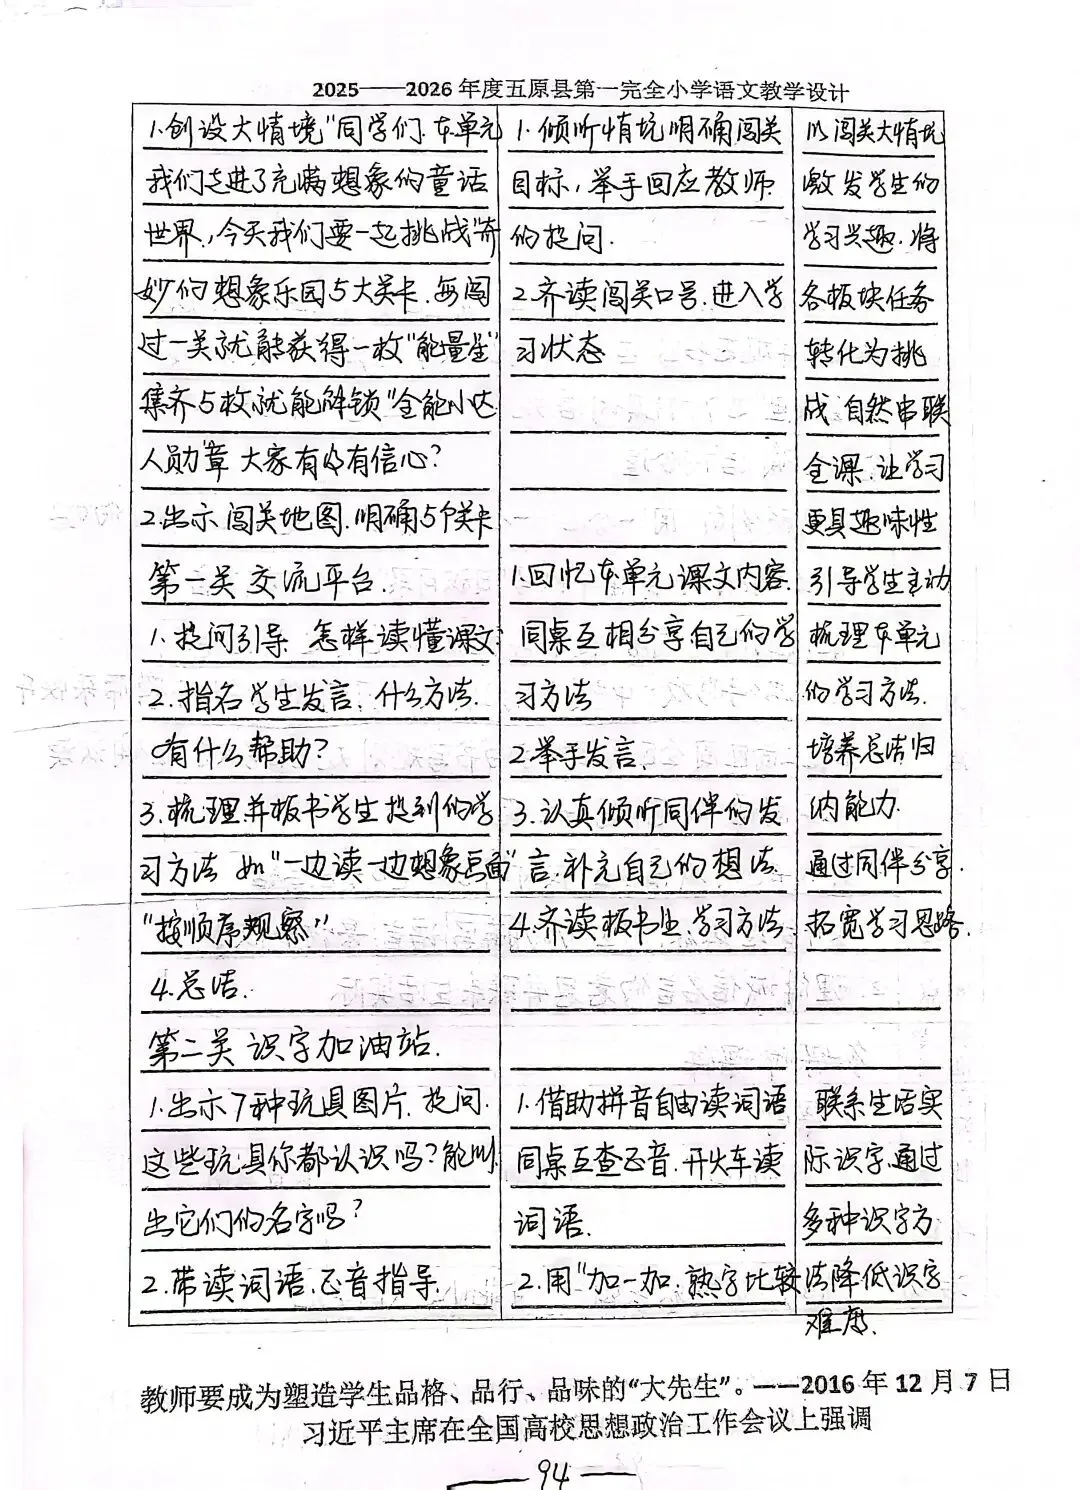 2025——2026年度五原县第一完全小学语文教学设计
1.创设大情境"同学们.本单元
我们走进了充满想象的童话
世界,今天我们要一起挑战"奇
妙的想象乐园5大关卡.每闯
过一关就能获得一枚"能量星"
集齐5枚就能解锁"全能小达
人勋章 大家有没有信心?
2.出示闯关地图.明确5个关卡
第一关 交流平台.
1.提问引导 怎样读懂课文?
2.指名学生发言.什么方法.
有什么帮助?
3.梳理并板书学生提到的学
习方法 如"一边读一边想象画面"
"按顺序观察"
4.总结.
第二关 识字加油站.
1.出示7种玩具图片.提问.
这些玩具你都认识吗?能叫
出它们的名字吗?
2.带读词语.正音指导.
1.倾听情境明确闯关
目标,举手回应教师
的提问.
2.齐读闯关口号.进入学
习状态
1.回忆本单元课文内容.
同桌互相分享自己的学
习方法
2.举手发言、
3.认真倾听同伴的发
言.补充自己的想法.
4.齐读板书上.学习方法
1.借助拼音自由读词语
同桌互查正音.开火车读
词语.
2.用"加一加.熟字比较
以闯关大情境
激发学生的
学习兴趣.将
各板块任务
转化为挑
战 自然串联
全课.让学习
更具趣味性
引导学生主动
梳理本单元
的学习方法.
培养总结归
纳能力.
通过同伴分享.
拓宽学习思路.
联系生活实
际识字.通过
多种识字方
法降低识字
难度.
教师要成为塑造学生品格、品行、品味的"大先生"。——2016年12月7日
习近平主席在全国高校思想政治工作会议上强调
—94—